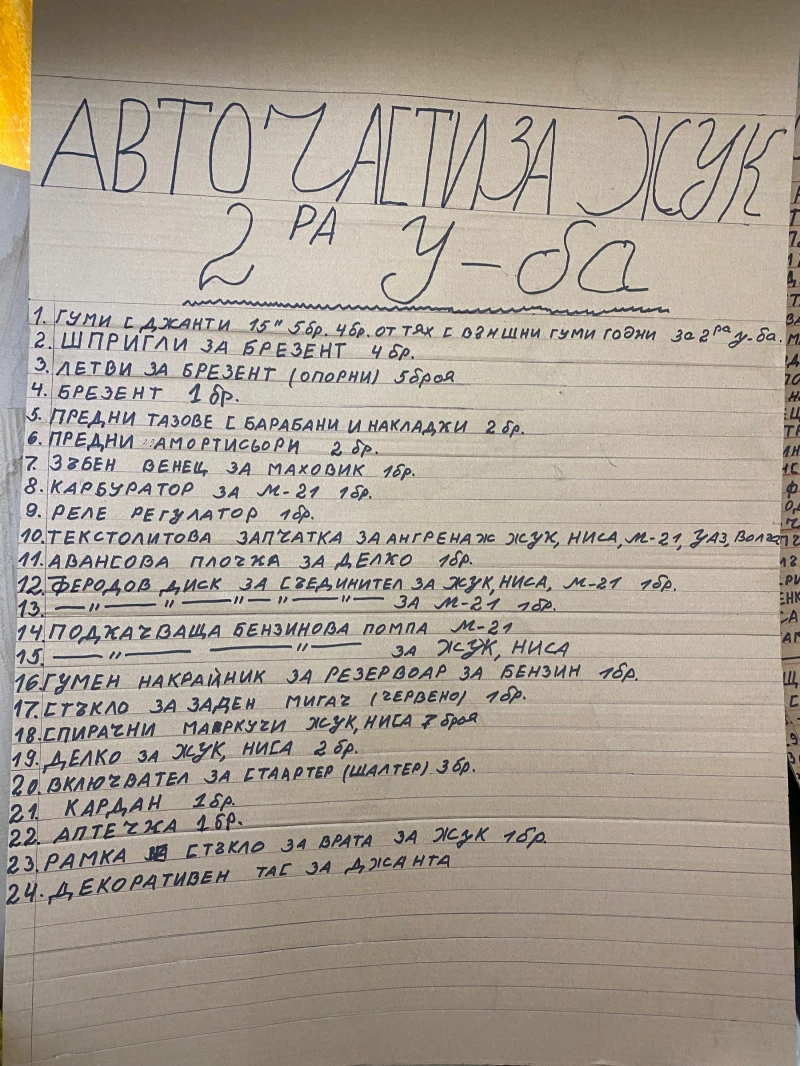 АВТОЧАСТИ ЗА ЖУК
2РА У-БА
1. ГУМИ С ДЖАНТИ 15" 5бр. 4бр. ОТ ТЯХ С ВЗНШНИ ГУМИ ГОДНИ За 2ра у-ба.
2. ШПРИГЛИ ЗА БРЕЗЕНТ 4 бр.
3. ЛЕТВИ ЗА БРЕЗЕНТ (ОПОРНИ) 5 броя
4. БРЕЗЕНТ 1 бр.
5. ПРЕДНИ ТАЗОВЕ С БАРАБАНИ И НАКЛАДКИ 2 бр.
6. ПРЕДНИ АМОРТИСЬОРИ 2 бр.
7. ЗЪБЕН ВЕНЕЦ ЗА МАХОВИК 1бр.
8. КАРБУРАТОР ЗА М-21 1бр.
9. РЕЛЕ РЕГУЛАТОР 1бр.
10. ТЕКСТОЛИТОВА ЗАПЧАТКА ЗА АНГРЕНАЖ ЖУК, НИСА, М-21, УАЗ, Волга
11. АВАНСОВА ПЛОЧКА ЗА ДЕЛКО 1бр.
12. ФЕРОДОВ ДИСК ЗА СЪЕДИНИТЕЛ ЗА ЖУК, НИСА, М-21 1бр.
13. — " — " — " — " — " — ЗА М-21 1бр.
14. ПОДКАЧВАЩА БЕНЗИНОВА ПОМПА М-21
15. — " — — " — ЗА ЖУК, НИСА
16. ГУМЕН НАКРАЙНИК ЗА РЕЗЕРВОАР ЗА БЕНЗИН 1бр.
17. СТЪКЛО ЗА ЗАДЕН МИГАЧ (ЧЕРВЕНО) 1бр.
18. СПИРАЧНИ МАРКУЧИ ЖУК, НИСА 7 броя
19. ДЕЛКО ЗА ЖУК, НИСА 2 бр.
20. ВКЛЮЧВАТЕЛ ЗА СТАРТЕР (ШАЛТЕР) 3 бр.
21. КАРДАН 1 бр.
22. АПТЕЧКА 1 бр.
23. РАМКА СТЪКЛО ЗА ВРАТА ЗА ЖУК 1бр.
24. ДЕКОРАТИВЕН ТАС ЗА ДЖАНТА